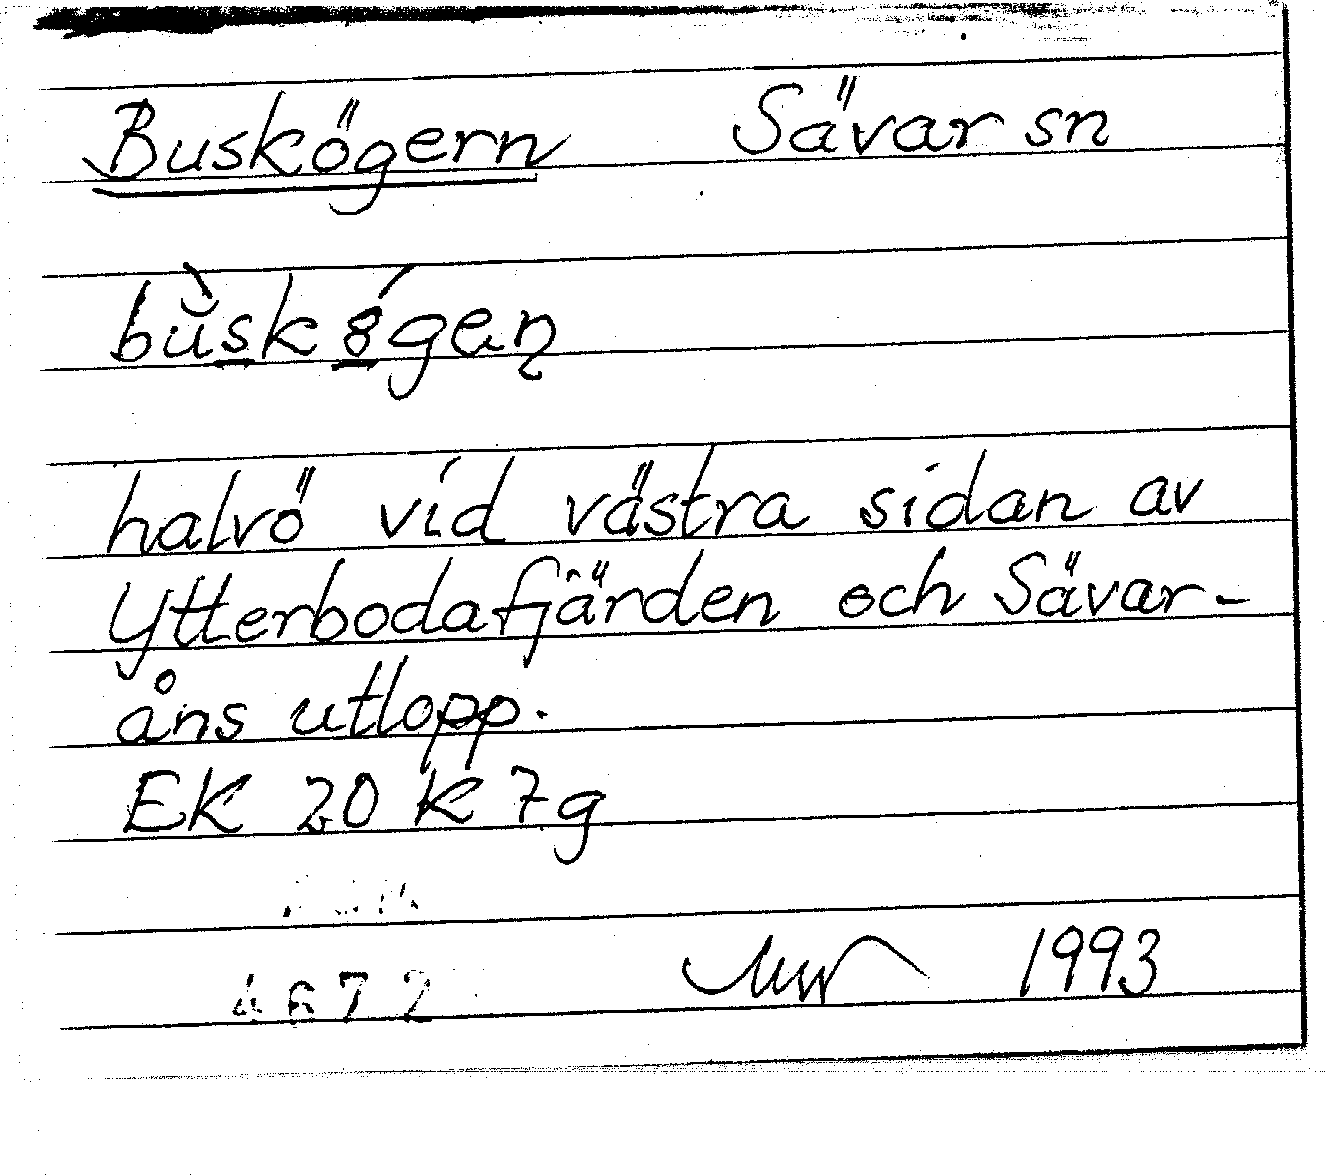 Buskögern Sävar sn
halvö vid västra sidan av
Ytterbodafjärden och Sävar-
åns utlopp.
EK 20 K 7g
1993
4672